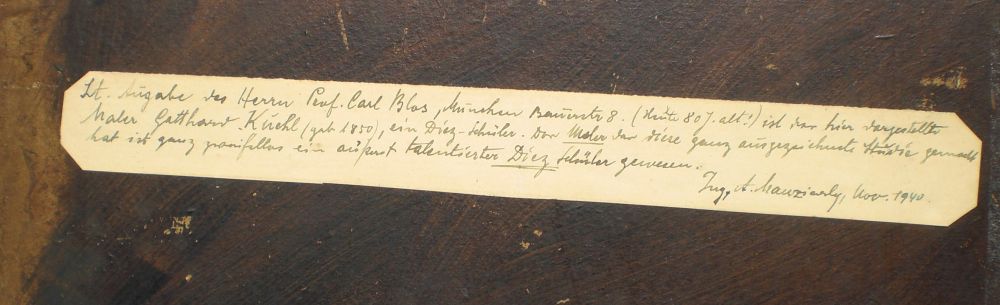 Lt. Angabe des Herrn Prof. Carl Blos, München Bauerstr 8. (Heute 80 J. alt!) ist der hier dargestellte
Maler Gotthard Kuehl (geb 1850), ein Diez-Schüler. Der Maler der diese ganz ausgezeichnete Studie gemacht
hat ist ganz zweifellos ein äußerst talentierter Diez Schüler gewesen.
Ing. A. Nov. 1940.